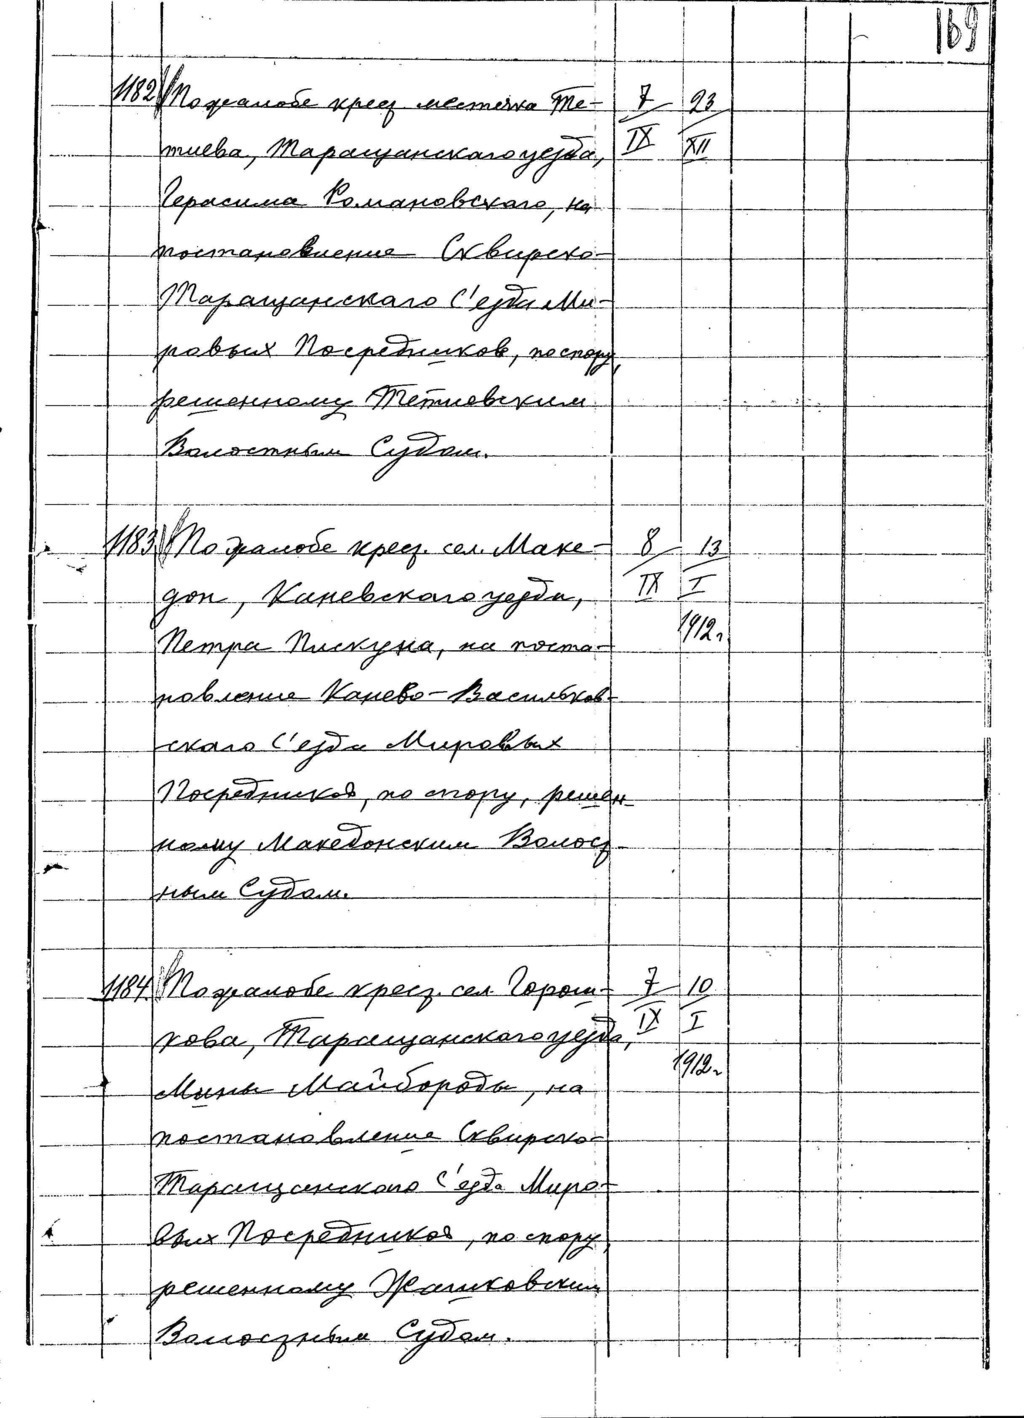 169
1182 По жалобе крест местечка Те- 7 23
тиева, Таращанскаго уезда, IX XII
Герасима Романовскаго, на
постановление Сквирско-
Таращанскаго С'езда Ми-
ровых Посредников, по спору,
решенному Тетиевским
Волостным Судом.
1183 По жалобе крест. сел. Маке- 8 13
дон, Каневскаго уезда, IX I
Петра Пискуна, на поста- 1912 г.
новление Канево-Васильков-
скаго С'езда Мировых
Посредников, по спору, решен-
ному Македонским Волост-
ным Судом.
1184 По жалобе крест. сел. Горош- 7 10
кова, Таращанскаго уезда, IX I
Мины Майбороды, на 1912 г
постановление Сквирско-
Таращанскаго С'езда Миро-
вых Посредников, по спору,
решенному Жашковским
Волостным Судом.